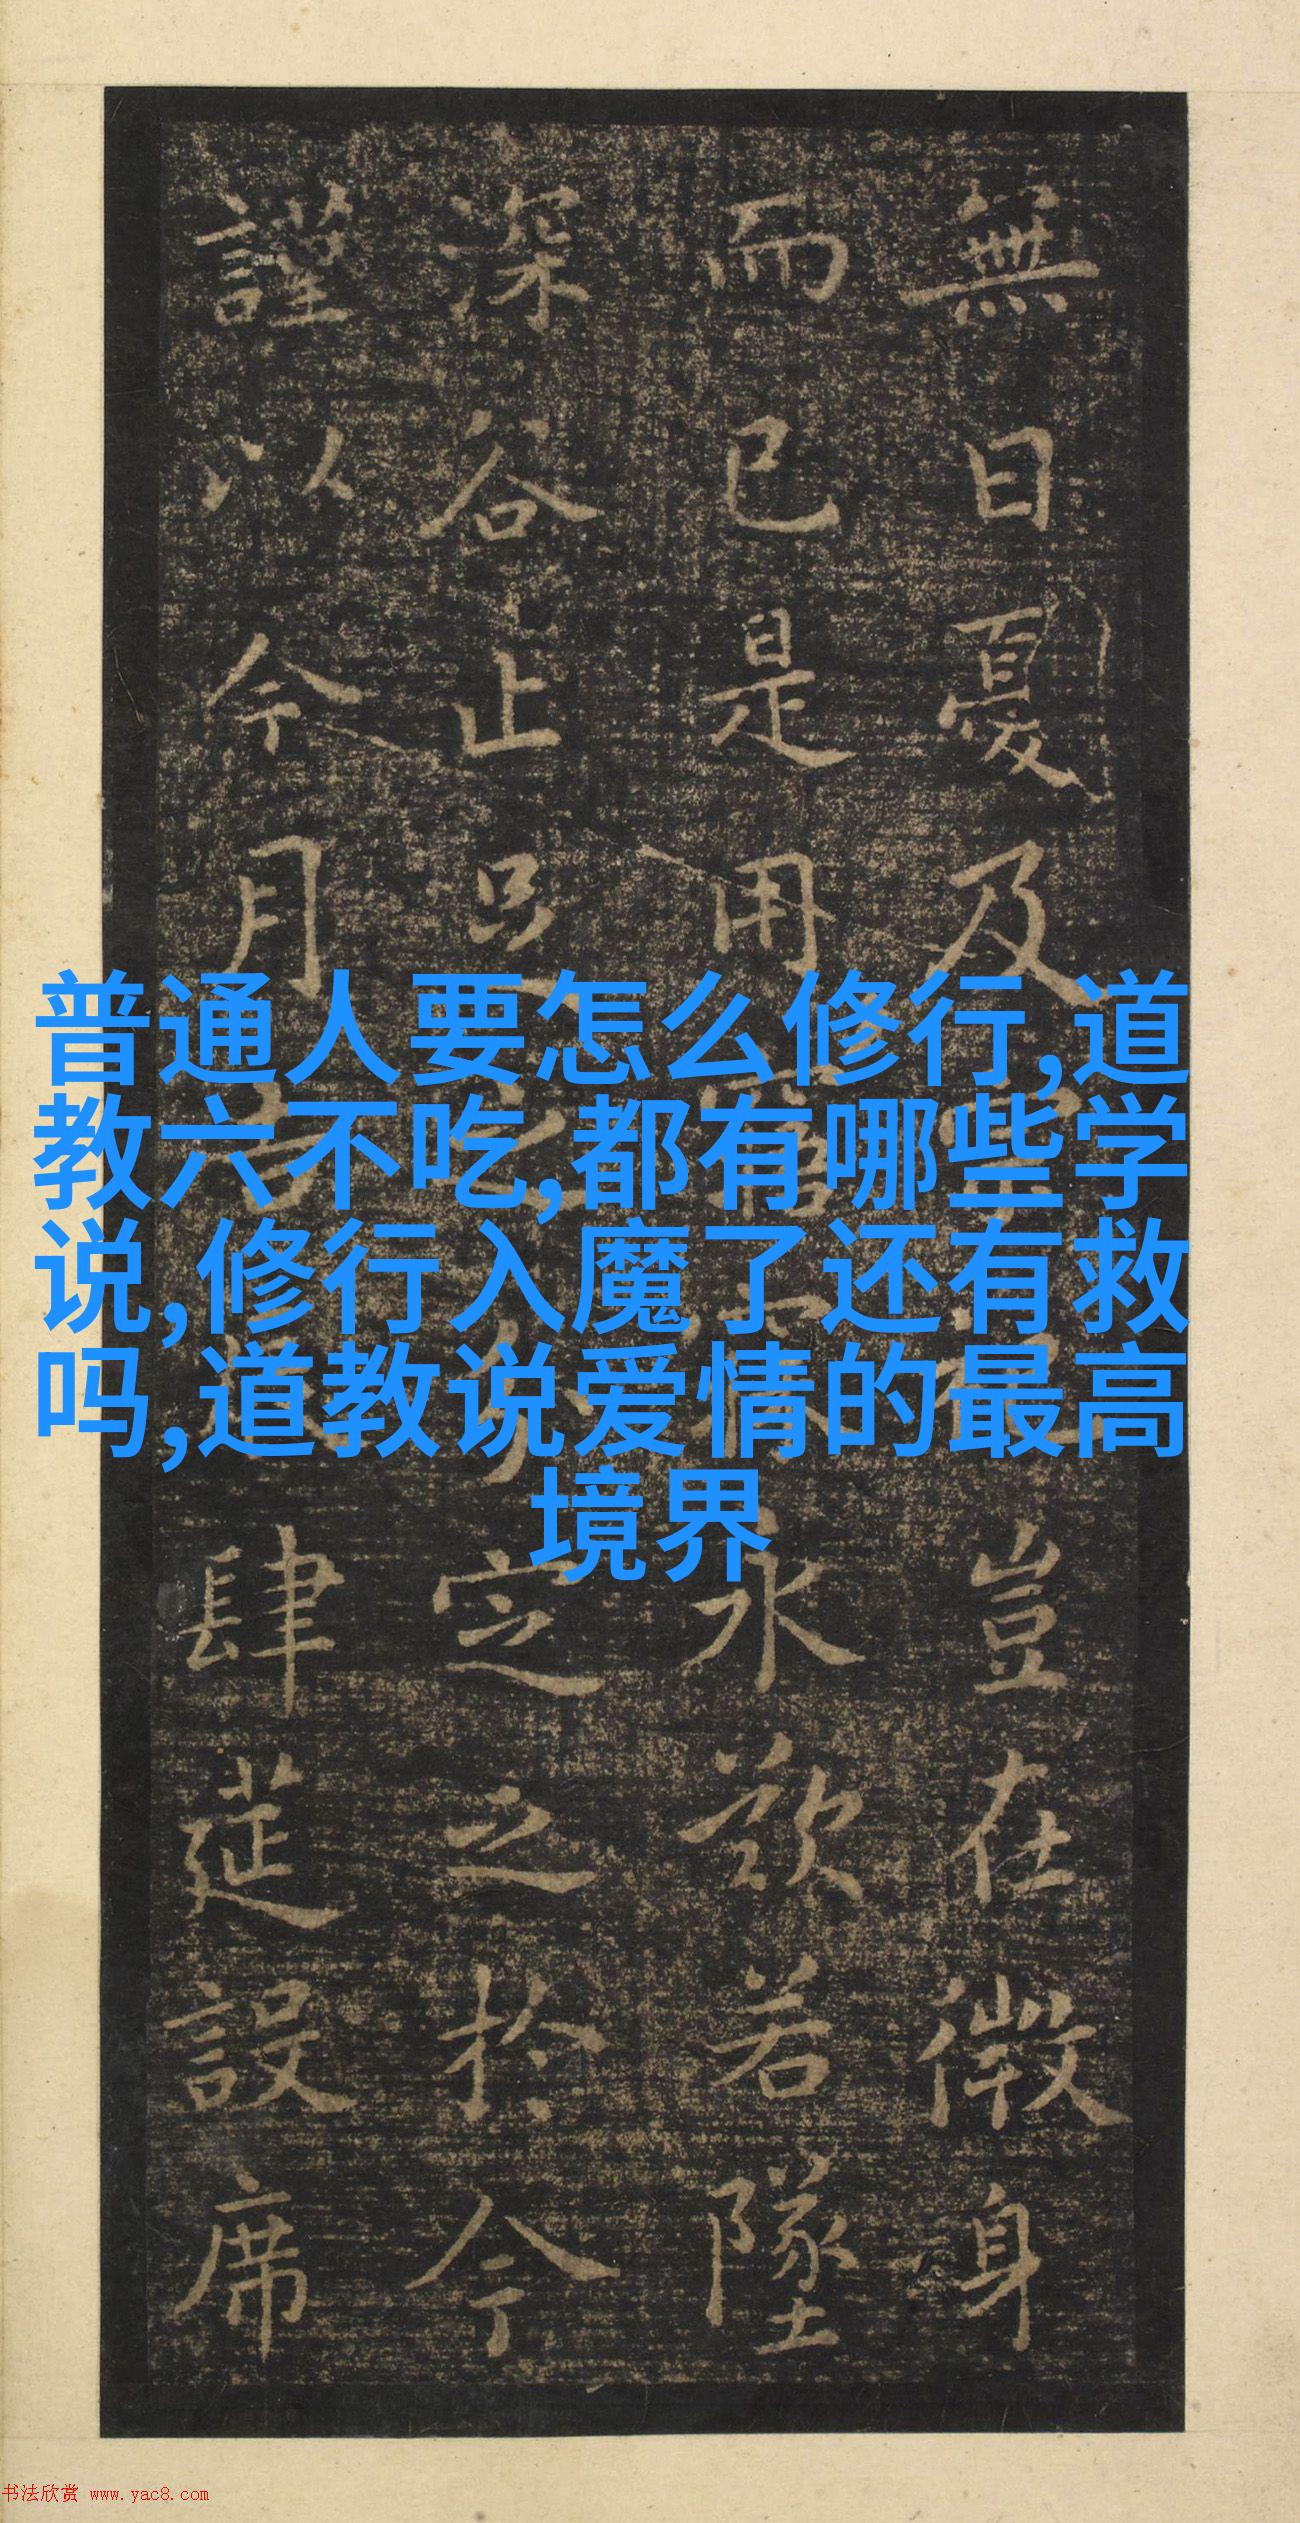 無日憂及豈在微身
而已是用永歎若墜
深谷止足定之於今
謹以今月肆筵設席
普通人要怎么修行,道
教六不吃,都有哪些学
说,修行入魔了还有救
吗,道教说爱情的最高
境界
书法欣赏 www.yac8.com